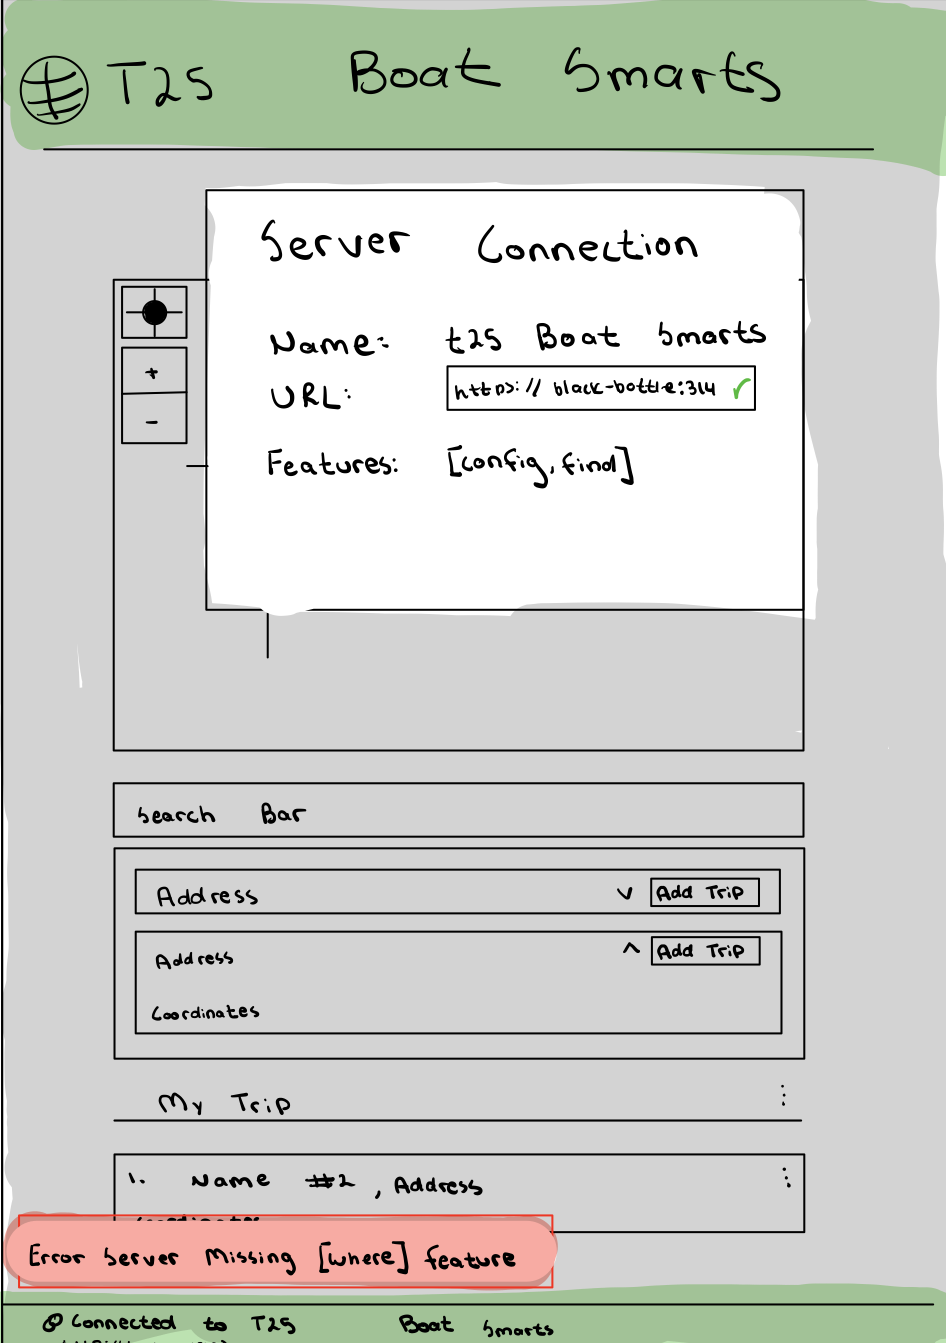 T25 Boat Smarts
Server Connection
Name: t25 Boat Smarts
URL: https://black-bottle:314 ✓
Features: [config, find]
+
-
Search Bar
Address v Add Trip
Address ^ Add Trip
Coordinates
My Trip ⋮
1. Name #2, Address ⋮
Coordinates
Error Server Missing [where] feature
Connected to T25 Boat Smarts